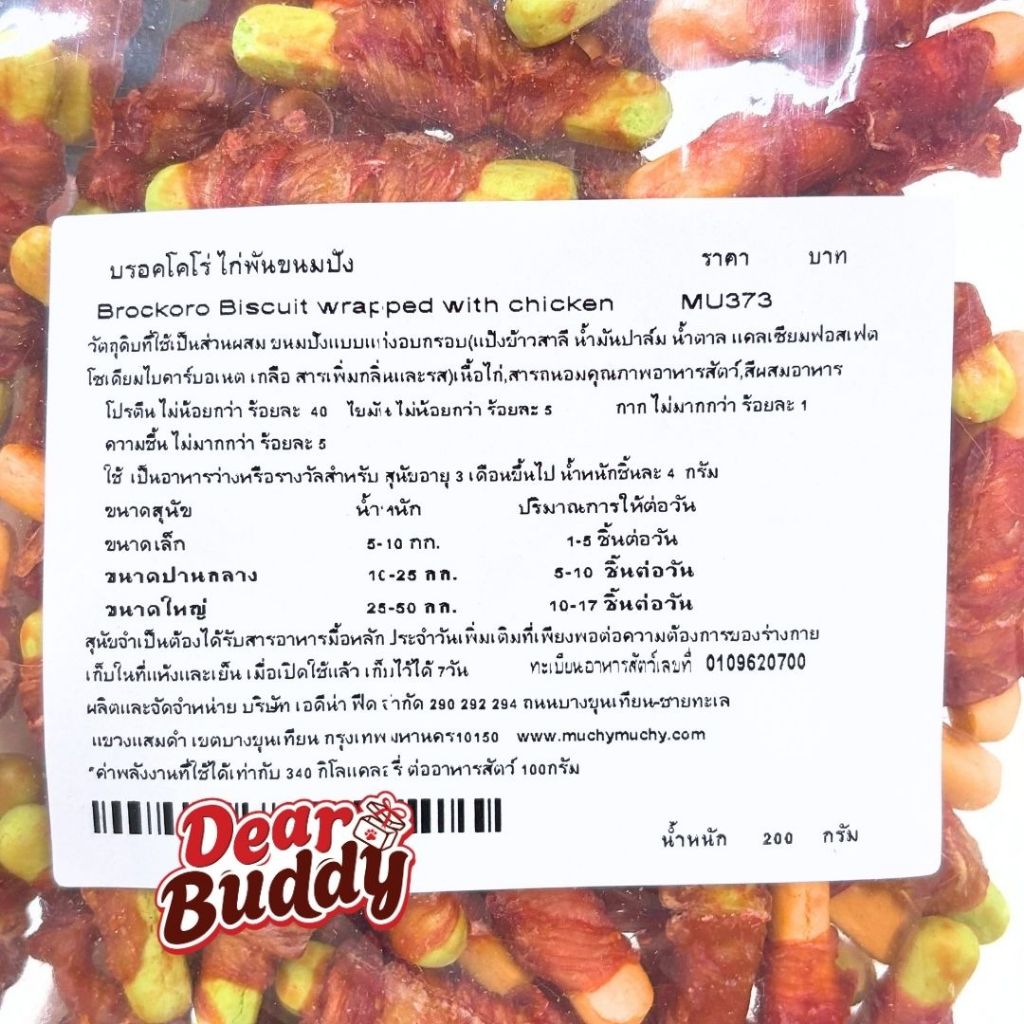 บรอคโคโร่ ไก่พันขนมปัง ราคา บาท
Brockoro Biscuit wrapped with chicken MU373
วัตถุดิบที่ใช้เป็นส่วนผสม ขนมปังแบบแท่งอบกรอบ(แป้งข้าวสาลี น้ำมันปาล์ม น้ำตาล แคลเซียมฟอสเฟต
โซเดียมไบคาร์บอเนต เกลือ สารเพิ่มกลิ่นและรส)เนื้อไก่,สารถนอมคุณภาพอาหารสัตว์,สีผสมอาหาร
โปรตีน ไม่น้อยกว่า ร้อยละ 40 ไขมัน ไม่น้อยกว่า ร้อยละ 5 กาก ไม่มากกว่า ร้อยละ 1
ความชื้น ไม่มากกว่า ร้อยละ 5
ใช้ เป็นอาหารว่างหรือรางวัลสำหรับ สุนัขอายุ 3 เดือนขึ้นไป น้ำหนักชิ้นละ 4 กรัม
ขนาดสุนัข น้ำหนัก ปริมาณการให้ต่อวัน
ขนาดเล็ก 5-10 กก. 1-5 ชิ้นต่อวัน
ขนาดปานกลาง 10-25 กก. 5-10 ชิ้นต่อวัน
ขนาดใหญ่ 25-50 กก. 10-17 ชิ้นต่อวัน
สุนัขจำเป็นต้องได้รับสารอาหารมื้อหลัก ประจำวันเพิ่มเติมที่เพียงพอต่อความต้องการของร่างกาย
เก็บในที่แห้งและเย็น เมื่อเปิดใช้แล้ว เก็บไว้ได้ 7วัน ทะเบียนอาหารสัตว์เลขที่ 0109620700
ผลิตและจัดจำหน่าย บริษัท เอดีน่า ฟีด จำกัด 290 292 294 ถนนบางขุนเทียน-ชายทะเล
แขวงแสมดำ เขตบางขุนเทียน กรุงเทพมหานคร10150 www.muchymuchy.com
*ค่าพลังงานที่ใช้ได้เท่ากับ 340 กิโลแคลอรี่ ต่ออาหารสัตว์ 100กรัม
Dear
Buddy
น้ำหนัก 200 กรัม